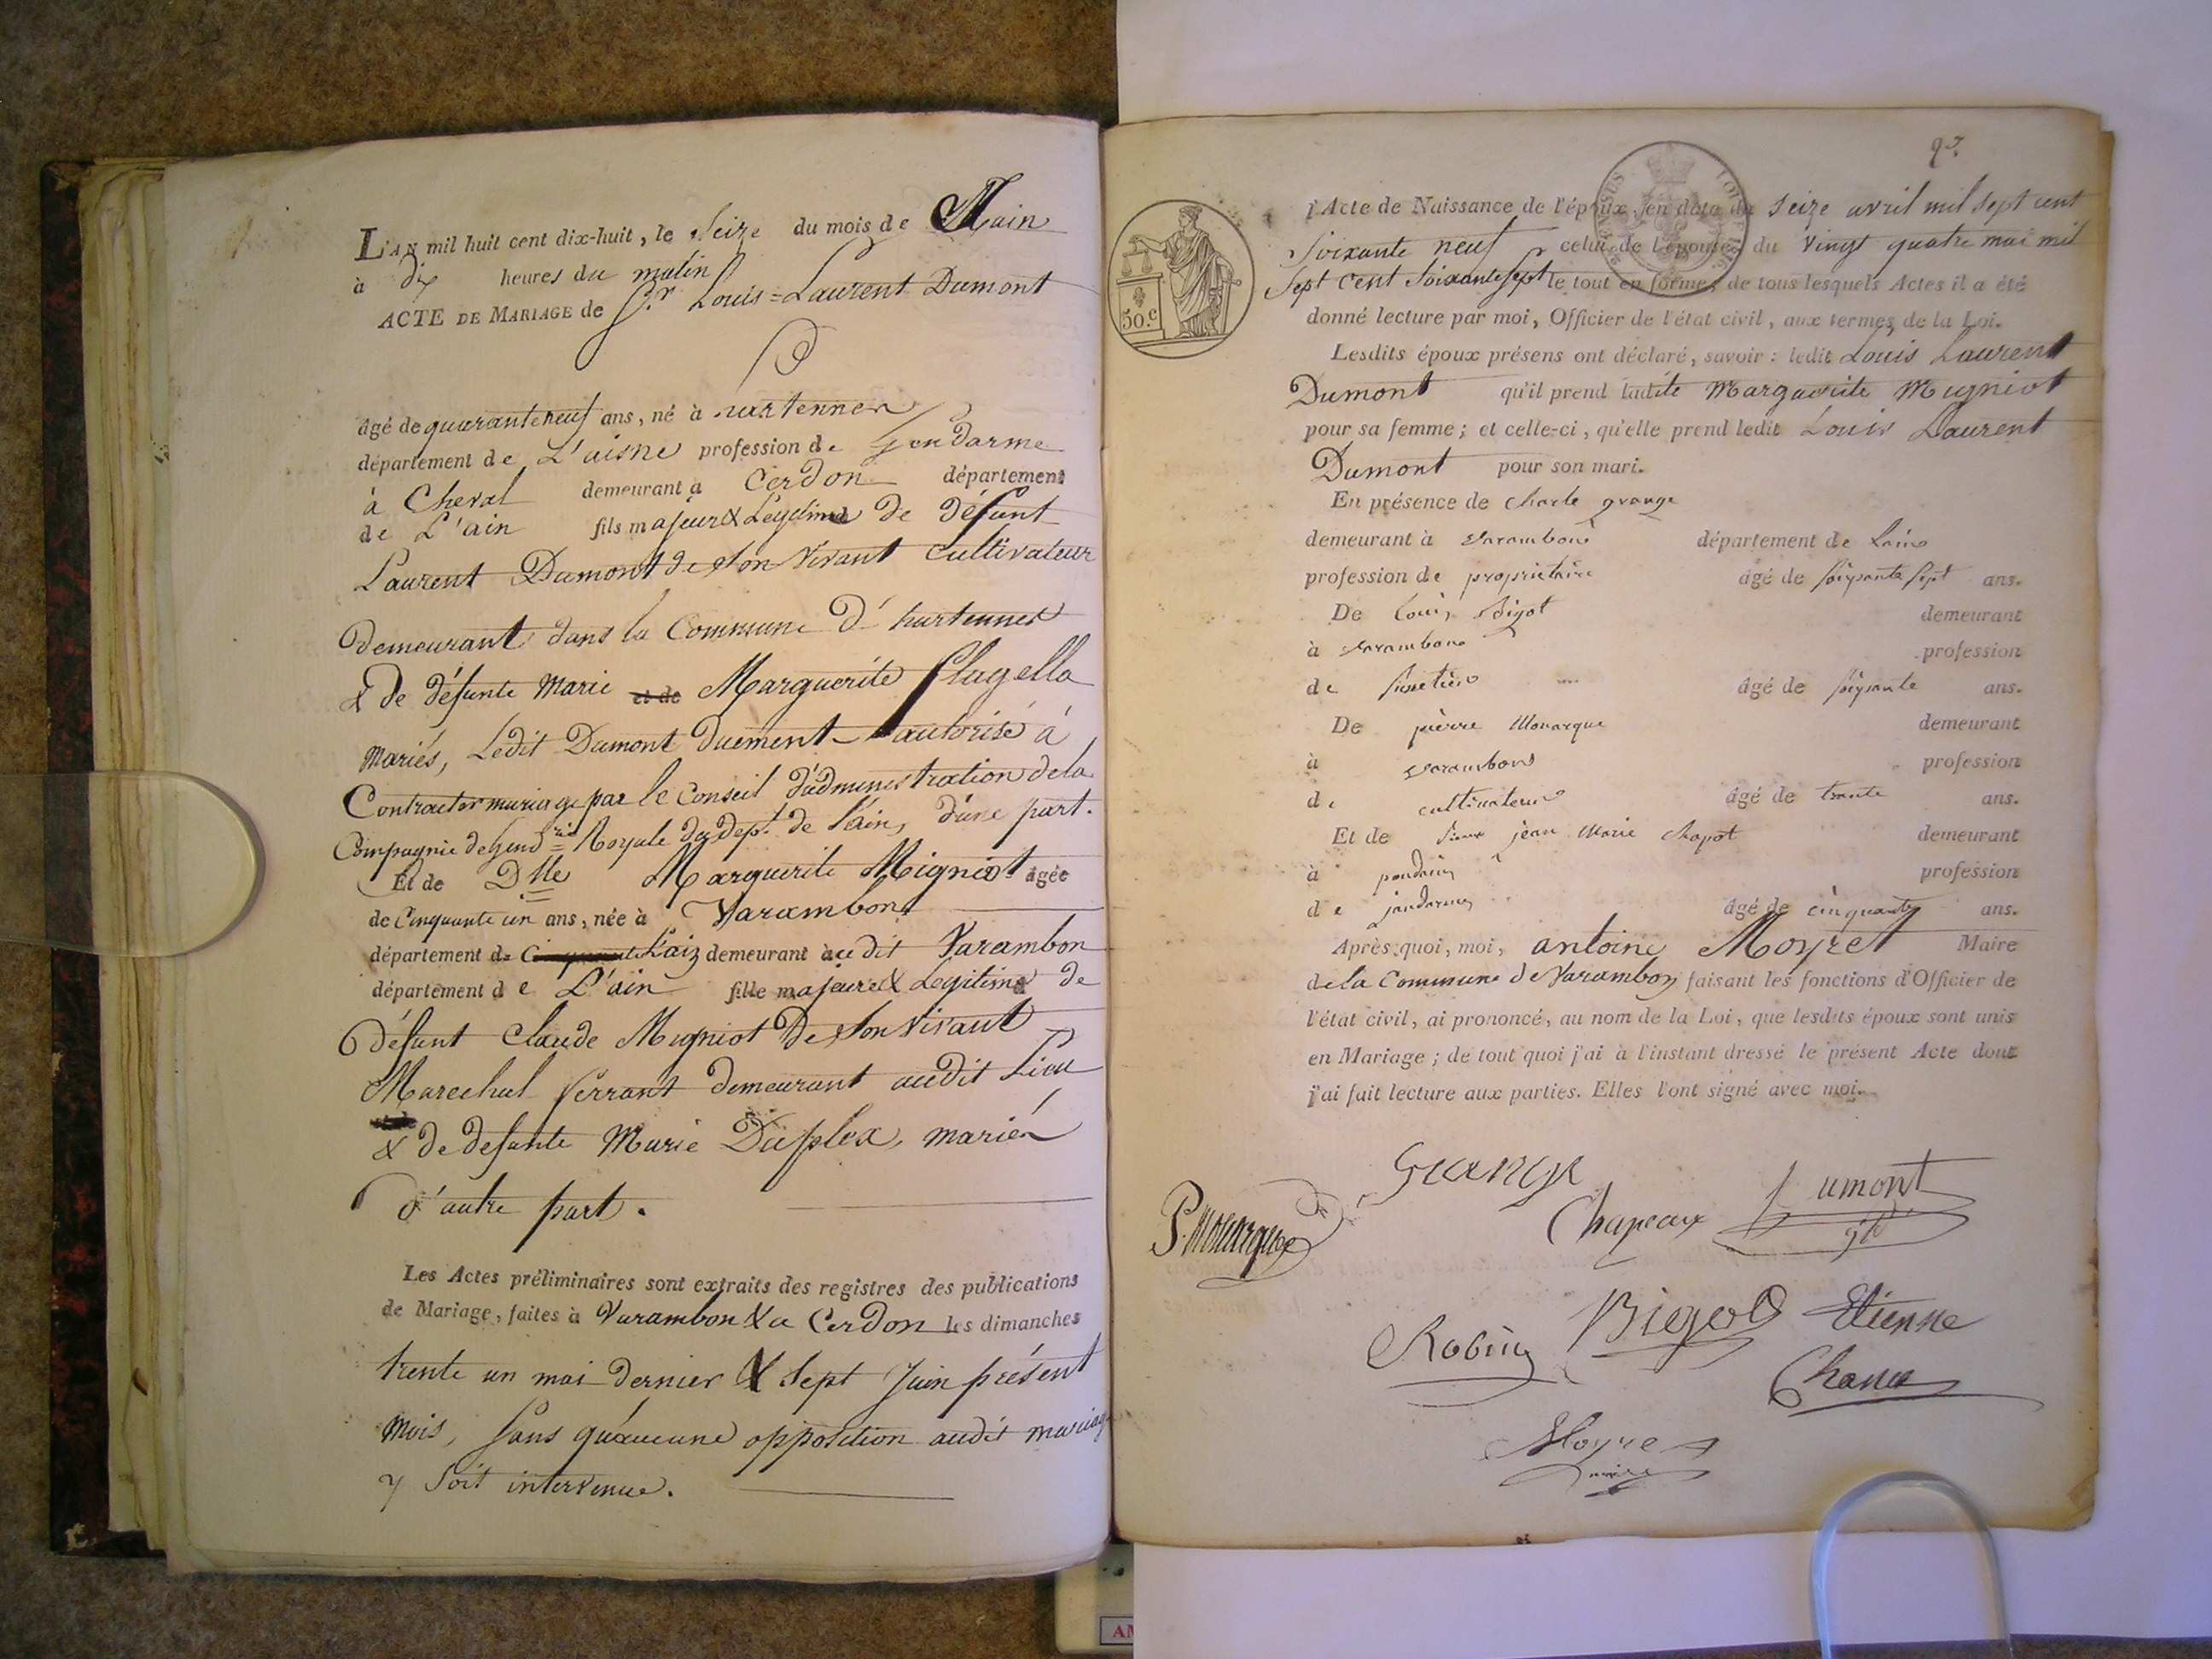 L'AN mil huit cent dix-huit, le Seize du mois de
à dix heures du matin
ACTE DE MARIAGE de Sr. Louis=Laurent Dumont
âgé de quarante neuf ans, né à hartennes
département de L'aisne profession de Gendarme
à Cheval demeurant à Cerdon département
de L'ain fils majeur & Legitime de défunt
Laurent Dumont de Son Vivant Cultivateur
Demeurant dans la Commune D'hartennes
& de défunte Marie et de Marguerite flagella
Mariés, Ledit Dumont duement autorisé à
Contracter mariage par le Conseil d'administration de la
Compagnie de Gend.rie Royale du dept. de L'ain, d'une part.
Et de Dlle Marguerite Migniot âgée
de Cinquante un ans, née à Varambon
département de L'ain demeurant audit Varambon
département de L'ain fille majeure & Legitime de
Défunt Claude Migniot De Son Vivant
Marechal ferrant demeurant audit Lieu
& de defunte Marie Duplex, mariés
d'autre part.
Les Actes préliminaires sont extraits des registres des publications
de Mariage, faites à Varambon & a Cerdon les dimanches
trente un mai dernier & Sept Juin présent
Mois, Sans qu'aucune opposition audit mariage
y Soit intervenue.
50.c
l'Acte de Naissance de l'époux, en date du Seize avril mil Sept cent
Soixante neuf celui de l'épouse, du Vingt quatre mai mil
Sept Cent Soixante Sept le tout en forme; de tous lesquels Actes il a été
donné lecture par moi, Officier de l'état civil, aux termes de la Loi.
Lesdits époux présens ont déclaré, savoir: ledit Louis Laurent
Dumont qu'il prend ladite Marguerite Migniot
pour sa femme; et celle-ci, qu'elle prend ledit Louis Laurent
Dumont pour son mari.
En présence de Charle grange
demeurant à Varambon département de Lain
profession de propriétaire âgé de soixante sept ans.
De Louis Bigot demeurant
à Varambon profession
de âgé de soixante ans.
De pierre Monarque demeurant
à Varambon profession
de cultivateur âgé de trente ans.
Et de Sieur jean Marie Chapot demeurant
à profession
de jandarme âgé de cinquante ans.
Après quoi, moi, antoine Moyret Maire
de la Commune de Varambon faisant les fonctions d'Officier de
l'état civil, ai prononcé, au nom de la Loi, que lesdits époux sont unis
en Mariage; de tout quoi j'ai à l'instant dressé le présent Acte dont
j'ai fait lecture aux parties. Elles l'ont signé avec moi.
Grange
P. Monarque Chapeaux Dumont
Robin Bigot Etienne
Moyret
maire